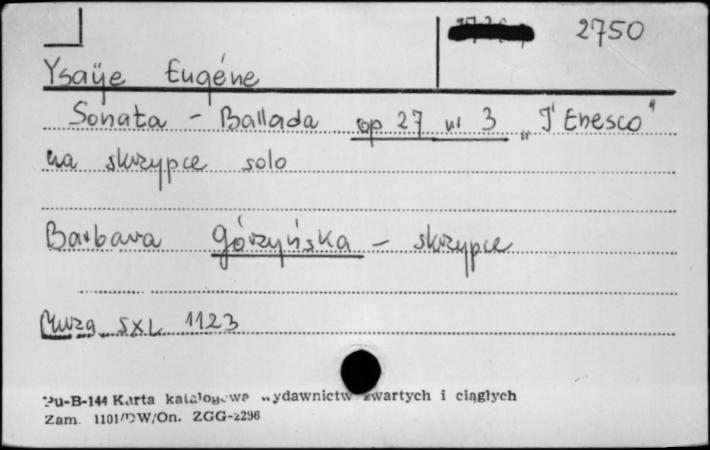 2750
Ysaÿe Eugéne
Sonata - Ballada op 27 nr 3 „J'Enesco"
na skrzypce solo
Barbara Górzyńska - skrzypce
Muza SXL 1123
Pu-B-144 Karta katalogowa wydawnictw zwartych i ciągłych
Zam. 1101/DW/On. ZGG-2296